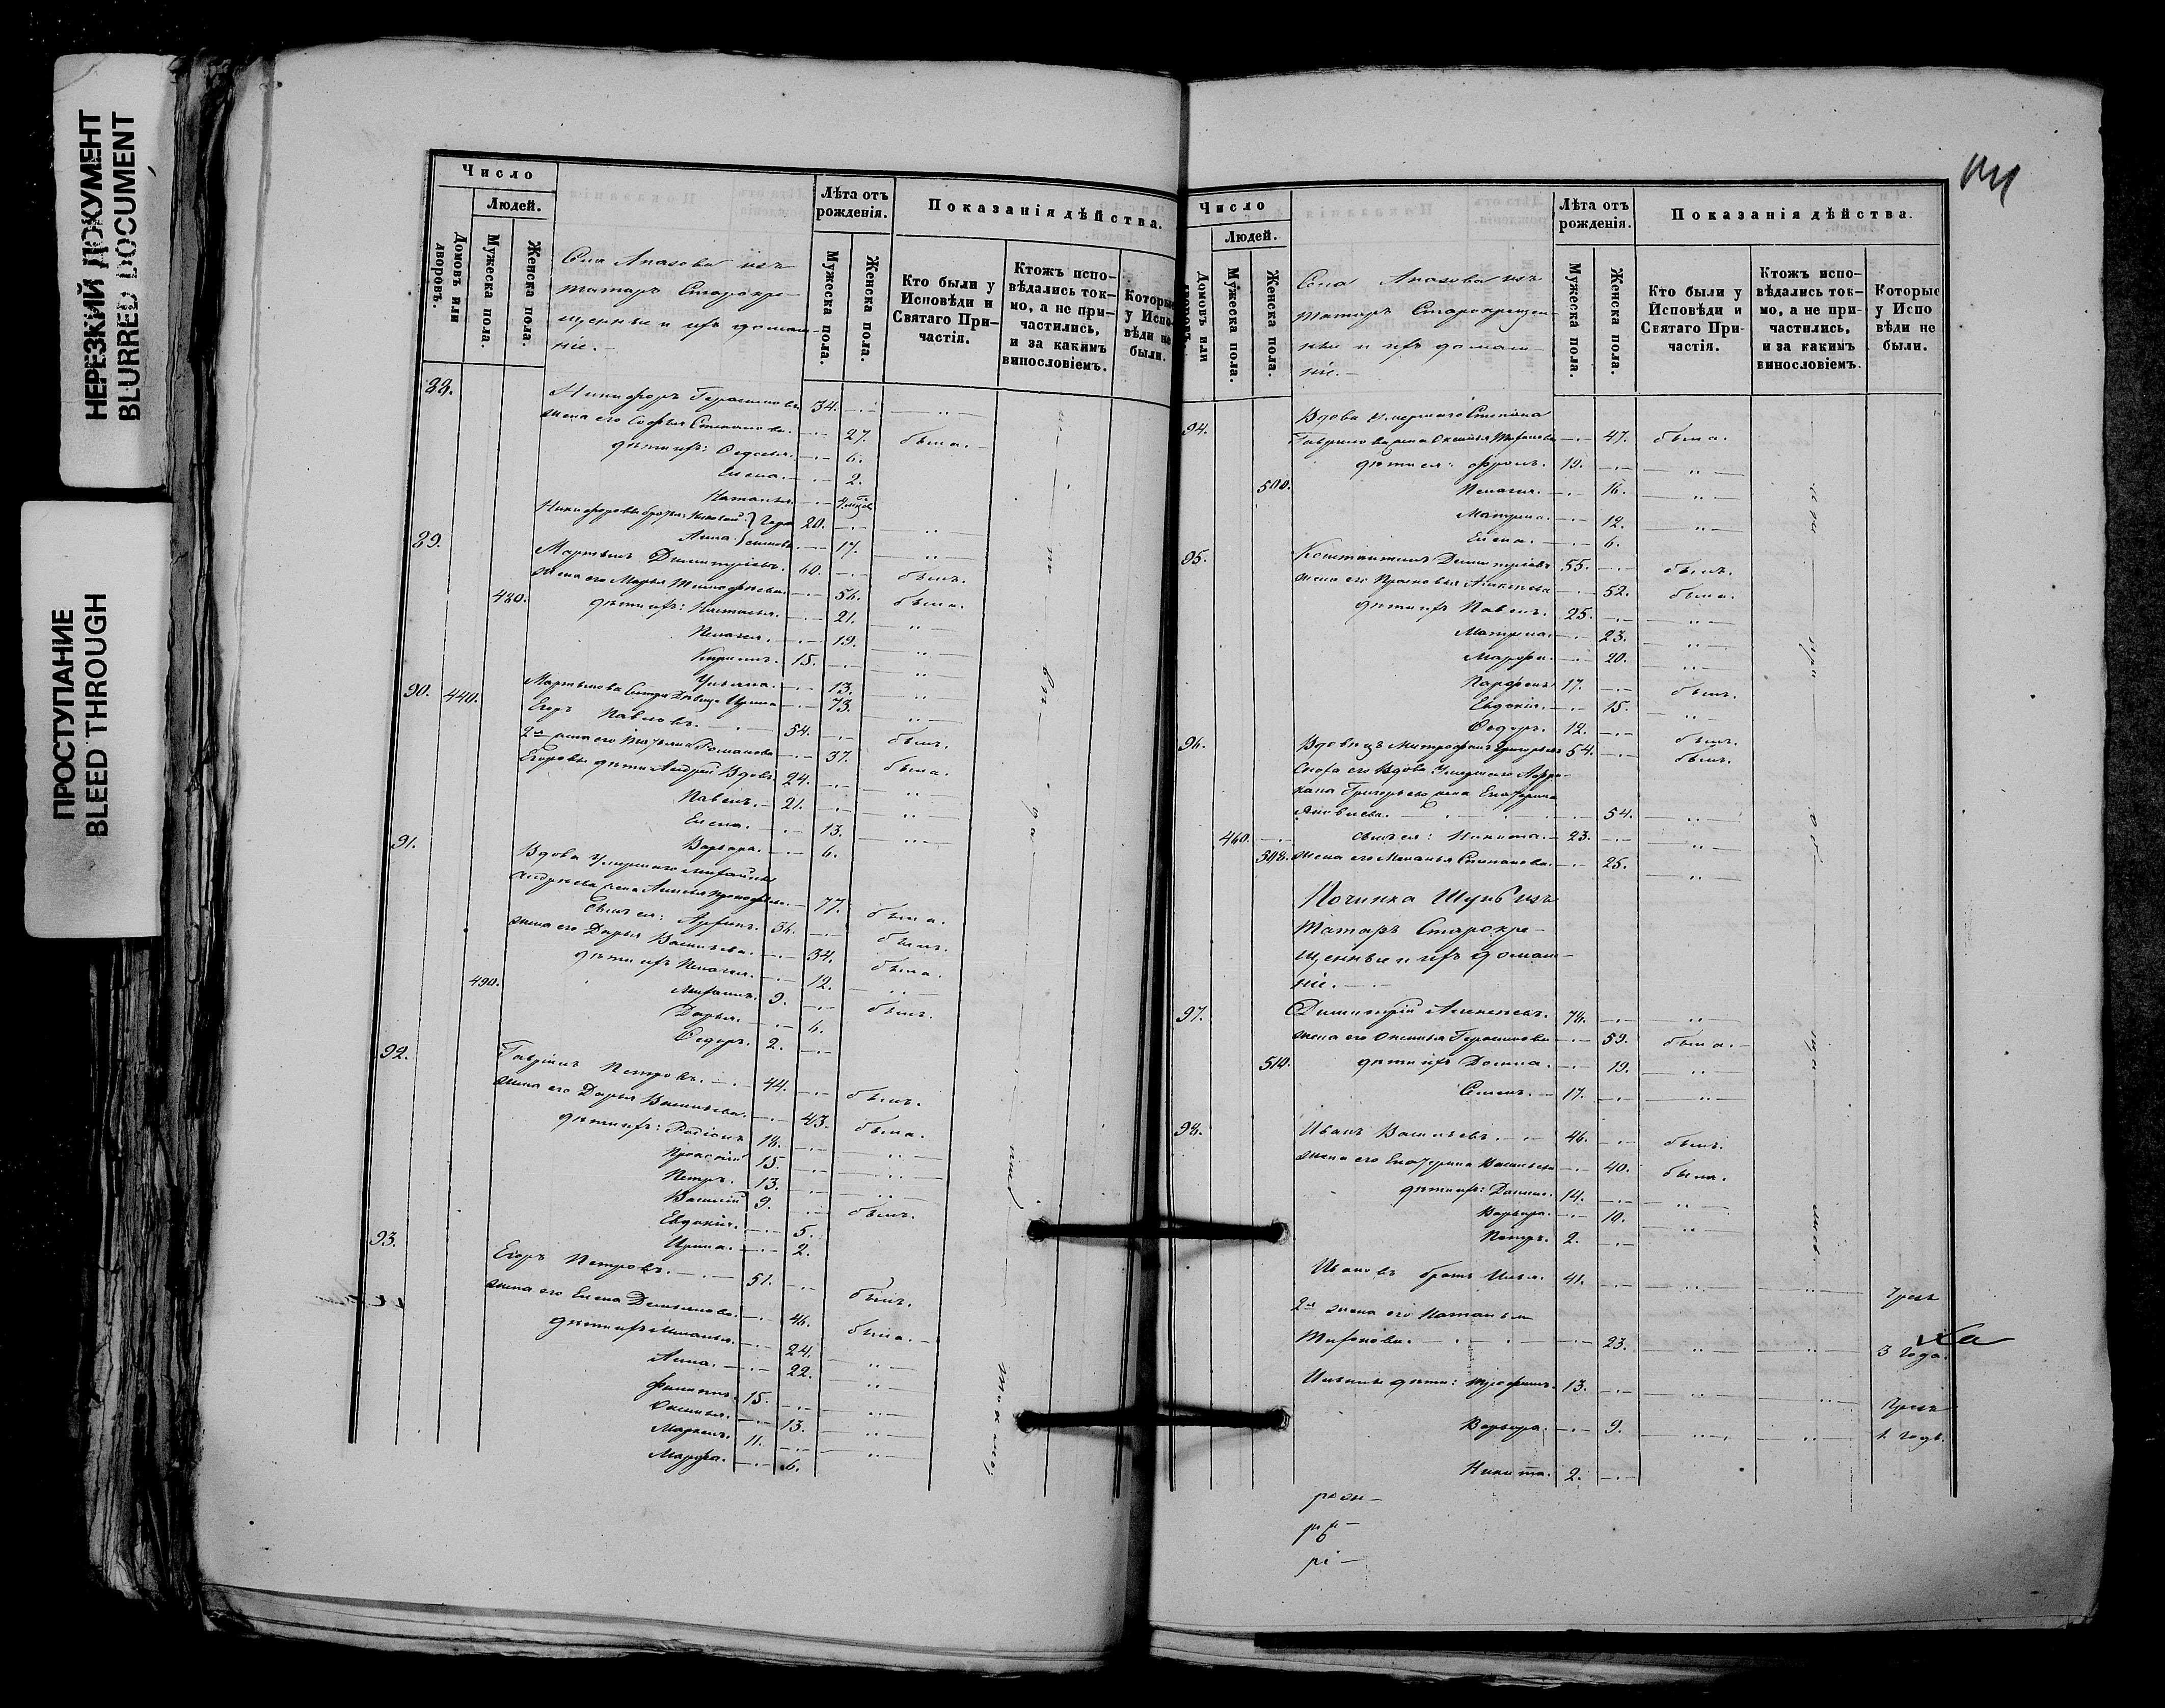 НЕРЕЗКИЙ ДОКУМЕНТ
BLURRED DOCUMENT
ПРОСТУПАНИЕ
BLEED THROUGH
Число
Людей.
Домовъ или дворовъ.
Мужеска пола.
Женска пола.
Лѣта отъ рожденія.
Мужеска пола.
Женска пола.
Показанія дѣйства.
Кто были у Исповѣди и Святаго Причастія.
Ктожъ исповѣдались токмо, а не причастились, и за какимъ винословіемъ.
Которые у Исповѣди не были.
Села Апазова изъ
татаръ Старокре-
щенные и ихъ домаш-
ніе.
88. Никифоръ Герасимовъ 34.
жена его Софья Степанова. 27. была.
дѣти ихъ: Федосья. 6.
Елена. 2.
Наталья. 4. мѣсяц.
20.
Анна 17.
89. Мартынъ Димитріевъ. 60. былъ.
жена его Марья Тимофеева. 56. была.
480. дѣти ихъ: Наталья. 21.
Пелагея. 19.
Кирилъ. 15.
Ульяна. 13.
Мартынова сестра Дѣвица Ирина 73.
90. 440. Егоръ Павловъ. 54. былъ.
2я жена его Татьяна Романова 37. была.
Егоровы дѣти Андрей Вдовъ. 24.
Павелъ. 21.
Елена. 13.
Варвара. 6.
91. Вдова Умершаго Михайлы
Андреева жена Анисья Прокофьева. 77. была.
Сынъ ея: 36. былъ.
жена его Дарья Васильева. 34. была.
дѣти ихъ Пелагея. 12.
490. Михаилъ. 9. былъ.
Дарья. 6.
Федоръ. 2.
92. Гавріилъ Петровъ. 44. былъ.
жена его Дарья Васильева. 43. была.
дѣти ихъ: Родіонъ 18.
Прокопій 15.
Петръ. 13.
Василій 9. былъ.
Евдокія. 5.
Ирина. 2.
93. Егоръ Петровъ. 51. былъ.
жена его Елена Демьянова. 46. была.
дѣти ихъ Меланья. 24.
Анна. 22.
Филиппъ. 15.
Оксинья. 13.
Маркелъ. 11.
Марфа. 6.
Число
Людей.
Домовъ или дворовъ.
Мужеска пола.
Женска пола.
Лѣта отъ рожденія.
Мужеска пола.
Женска пола.
Показанія дѣйства.
Кто были у Исповѣди и Святаго Причастія.
Ктожъ исповѣдались токмо, а не причастились, и за какимъ винословіемъ.
Которые у Исповѣди не были.
Села Апазова изъ
татаръ Старокрещен-
ные и ихъ домаш-
ніе.
94. Вдова Умершаго Степана
Гаврилова жена Оксинья 47. была.
дѣти ея: Фролъ. 19.
500. Пелагея. 16.
Матрена. 12.
Елена. 6.
95. Константинъ Димитріевъ 55. былъ.
жена его Прасковья Алексеева 52. была.
дѣти ихъ Павелъ. 25.
Матрена. 23.
Марфа. 20.
Парфенъ. 17. былъ.
Евдокія. 15.
Федоръ. 12. былъ.
96. Вдовецъ Митрофанъ Григорьевъ 54. былъ.
Сноха его Вдова Умершаго
Григорьева жена Екатерина
Яковлева. 54.
460. сынъ ея: Никита. 23.
508. жена его Меланья Степанова. 25.
Починка изъ
Татаръ Старокре-
щенные и ихъ домаш-
ніе.
97. Димитрій Алексеевъ. 78.
жена его Оксинья Герасимова 59. была.
510. дѣти ихъ Домна. 19.
Семенъ. 17.
98. Иванъ Васильевъ. 46. былъ.
жена его Екатерина Васильева 40. была.
дѣти ихъ: Данила. 14.
Варвара. 10.
Петръ. 2.
Ивановъ братъ Илья. 41. Чрезъ
2я жена его Наталья
Тихонова. 23. 3 года.
Ильины дѣти: Трофимъ. 13. Чрезъ
Варвара. 9. 1. годъ.
Никита. 2.